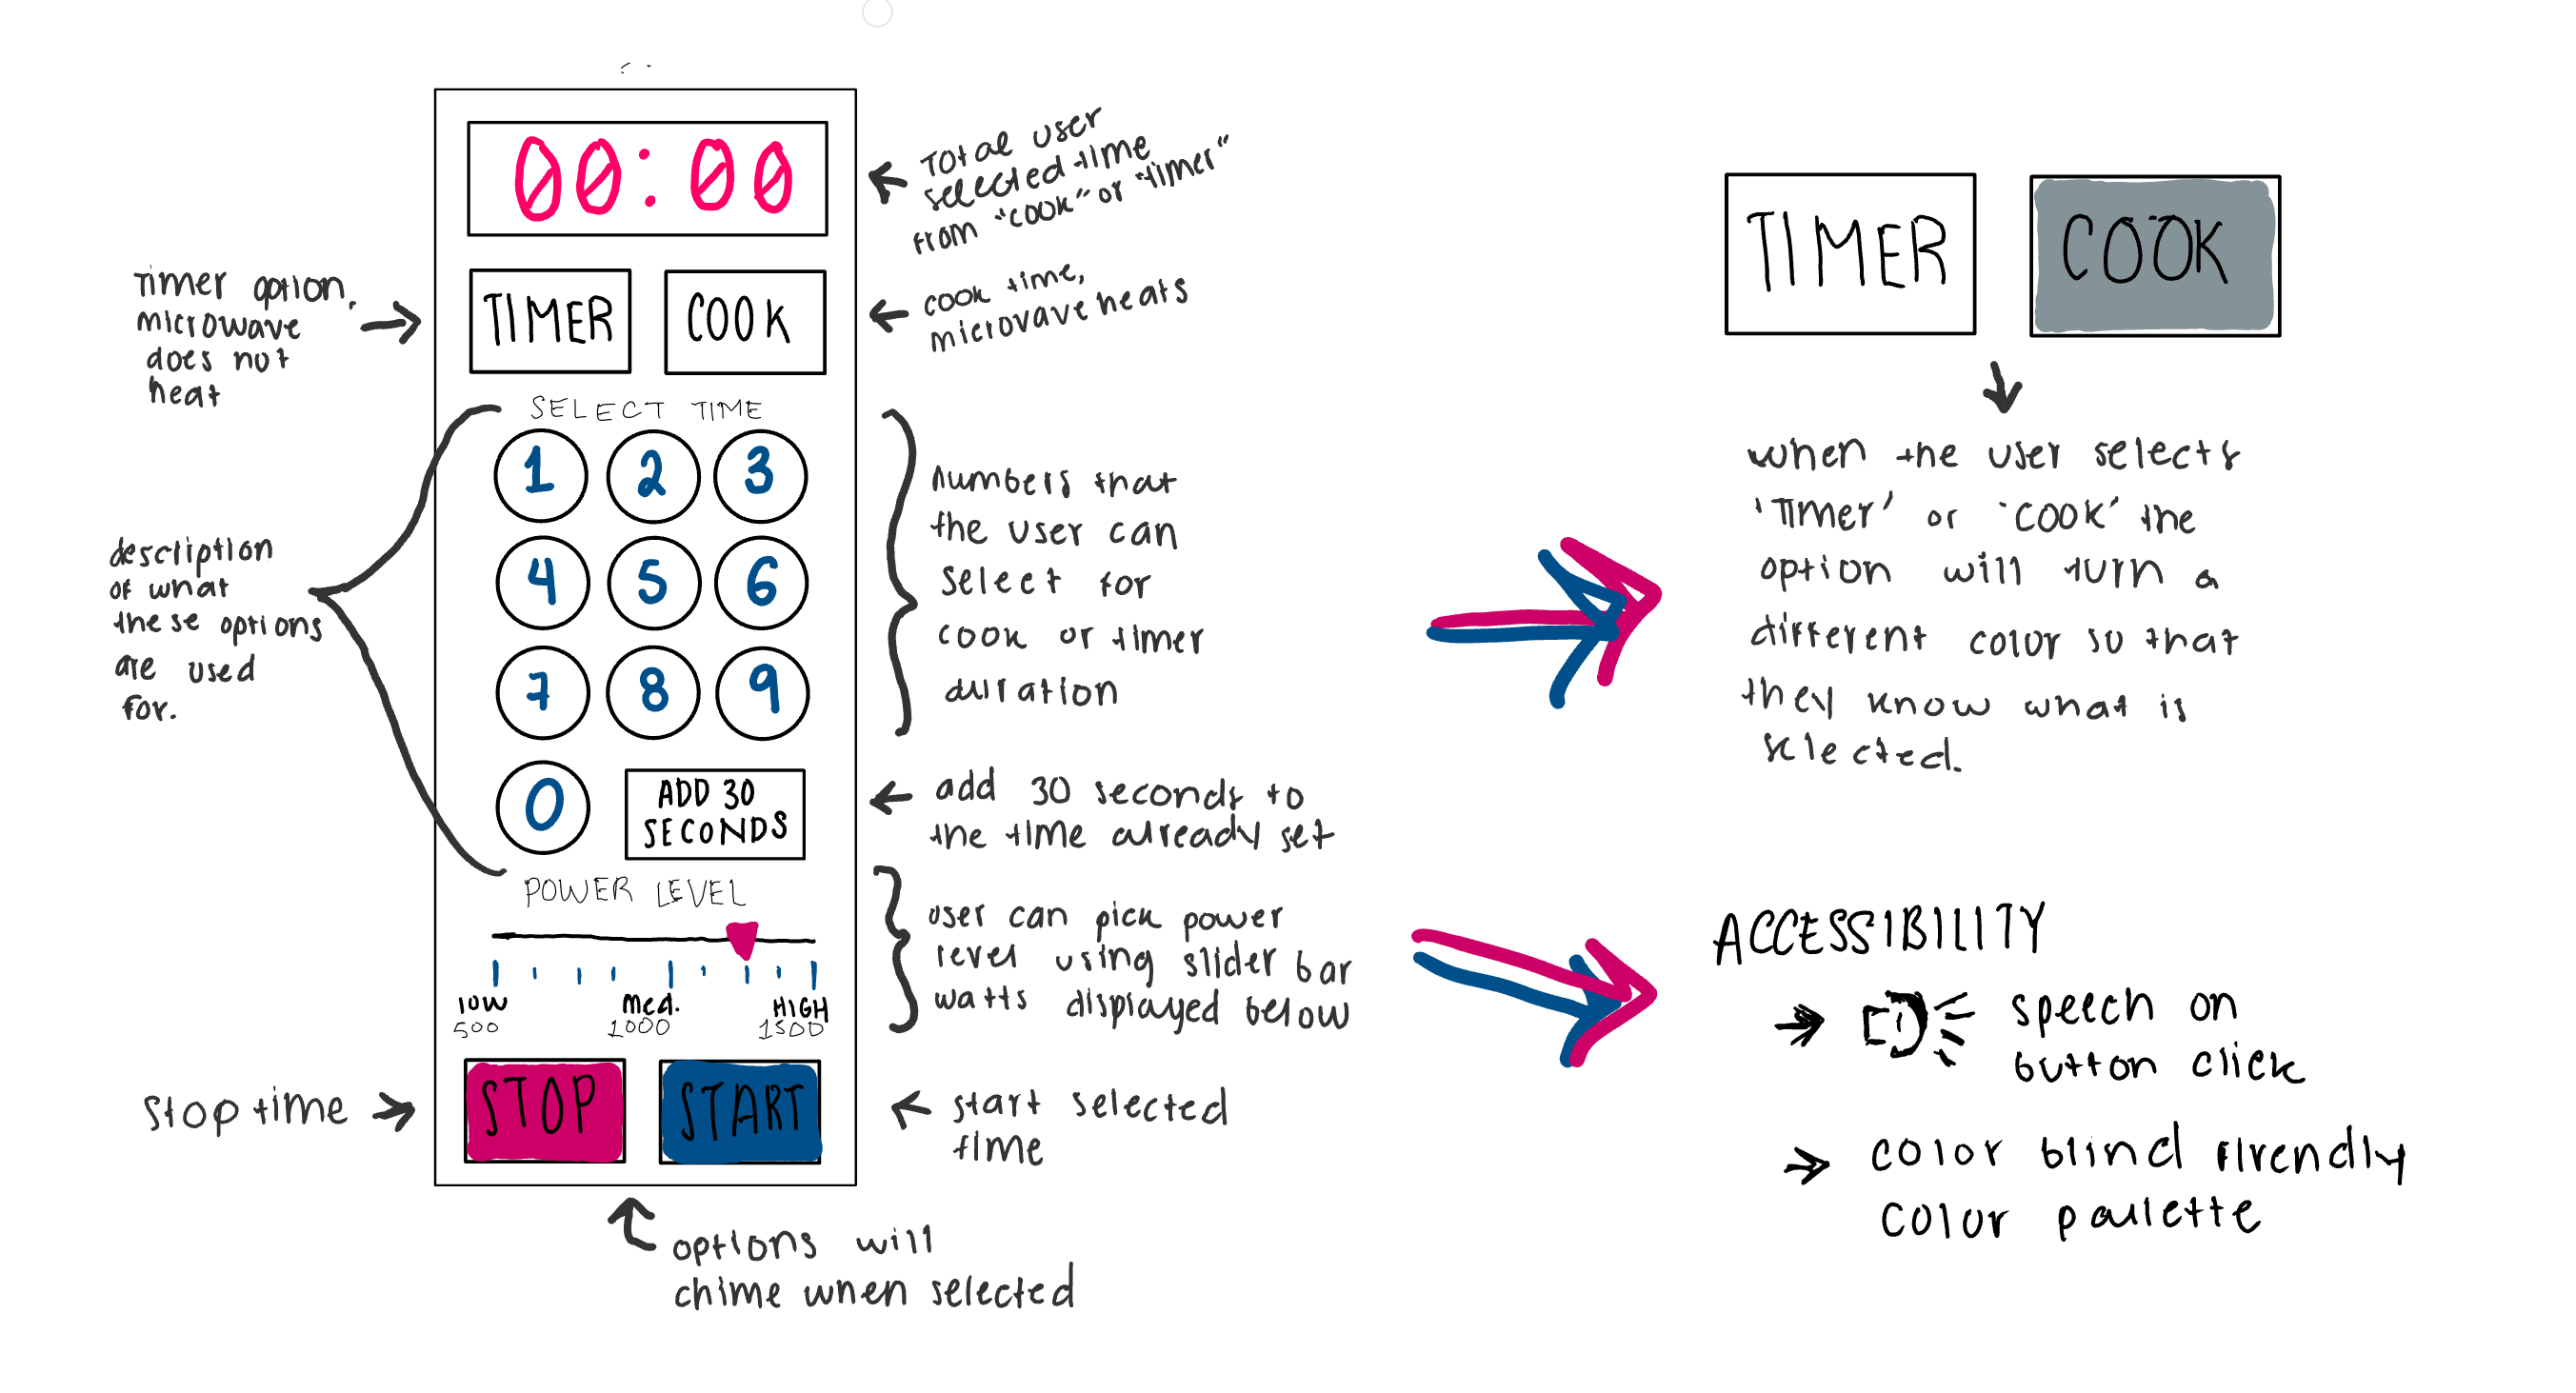 00:00
Total user
selected time
from "cook" or "timer"
Timer option,
microwave
does not
heat
TIMER
COOK
cook time,
microvave heats
SELECT TIME
1 2 3
4 5 6
7 8 9
0
ADD 30
SECONDS
description
of what
these options
are used
for.
numbers that
the user can
select for
cook or timer
duration
add 30 seconds to
the time already set
POWER LEVEL
low med. HIGH
500 1000 1500
user can pick power
level using slider bar
watts displayed below
STOP
START
stop time
start selected
time
options will
chime when selected
TIMER
COOK
when the user selects
'Timer' or 'COOK' the
option will turn a
different color so that
they know what is
selected.
ACCESSIBILITY
speech on
button click
color blind firendly
color paulette